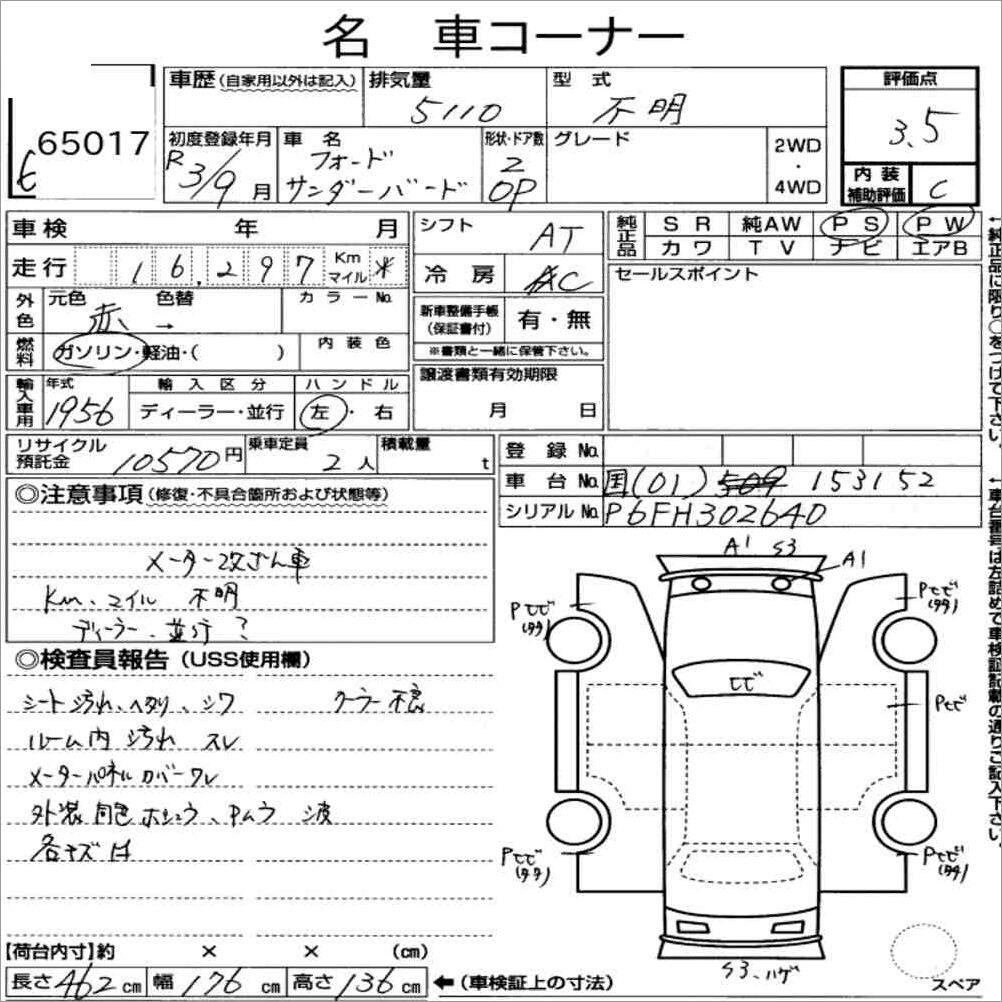 名 車コーナー
65017
車歴 (自家用以外は記入)
排気量
5110
型式
不明
評価点
3.5
初度登録年月
R 3/9月
車名
フォード
サンダーバード
形状・ドア数
2
OP
グレード
2WD
・
4WD
内装
補助評価
C
車検 年 月
走行 16,297 Km マイル *
外色
元色 赤 → 色替
カラーNo.
燃料
ガソリン・軽油・( )
内装色
輸入車用
年式
1956
輸入区分
ディーラー・並行
ハンドル
左・右
シフト
AT
冷房
AC
新車整備手帳
(保証書付)
有・無
※書類と一緒に保管下さい。
譲渡書類有効期限
月 日
純正品
SR 純AW PS PW
カワ TV ナビ エアB
セールスポイント
←純正品に限り○をつけて下さい。
リサイクル
預託金
10570円
乗車定員
2人
積載量
t
登録No.
車台No. 国(01) 509 153152
シリアルNo. P6FH302640
←車台番号は左詰めで車検証記載の通りご記入下さい。
◎注意事項(修復・不具合箇所および状態等)
メーター改ざん車
Km、マイル 不明
ディーラー、並行?
◎検査員報告(USS使用欄)
シート汚れ、ヘタリ、シワ クーラー不良
ルーム内 汚れ スレ
メーターパネルカバーワレ
外装 同色ホシュウ、Pムラ 波
各キズ
A1 S3
A1
Pヒビ
(タタ)
Pヒビ
(タタ)
ヒビ
Pヒビ
Pヒビ
(タタ)
Pヒビ
(タタ)
S3、ハゲ
スペア
【荷台内寸】約 × × (cm)
長さ462cm 幅176cm 高さ136cm ←(車検証上の寸法)